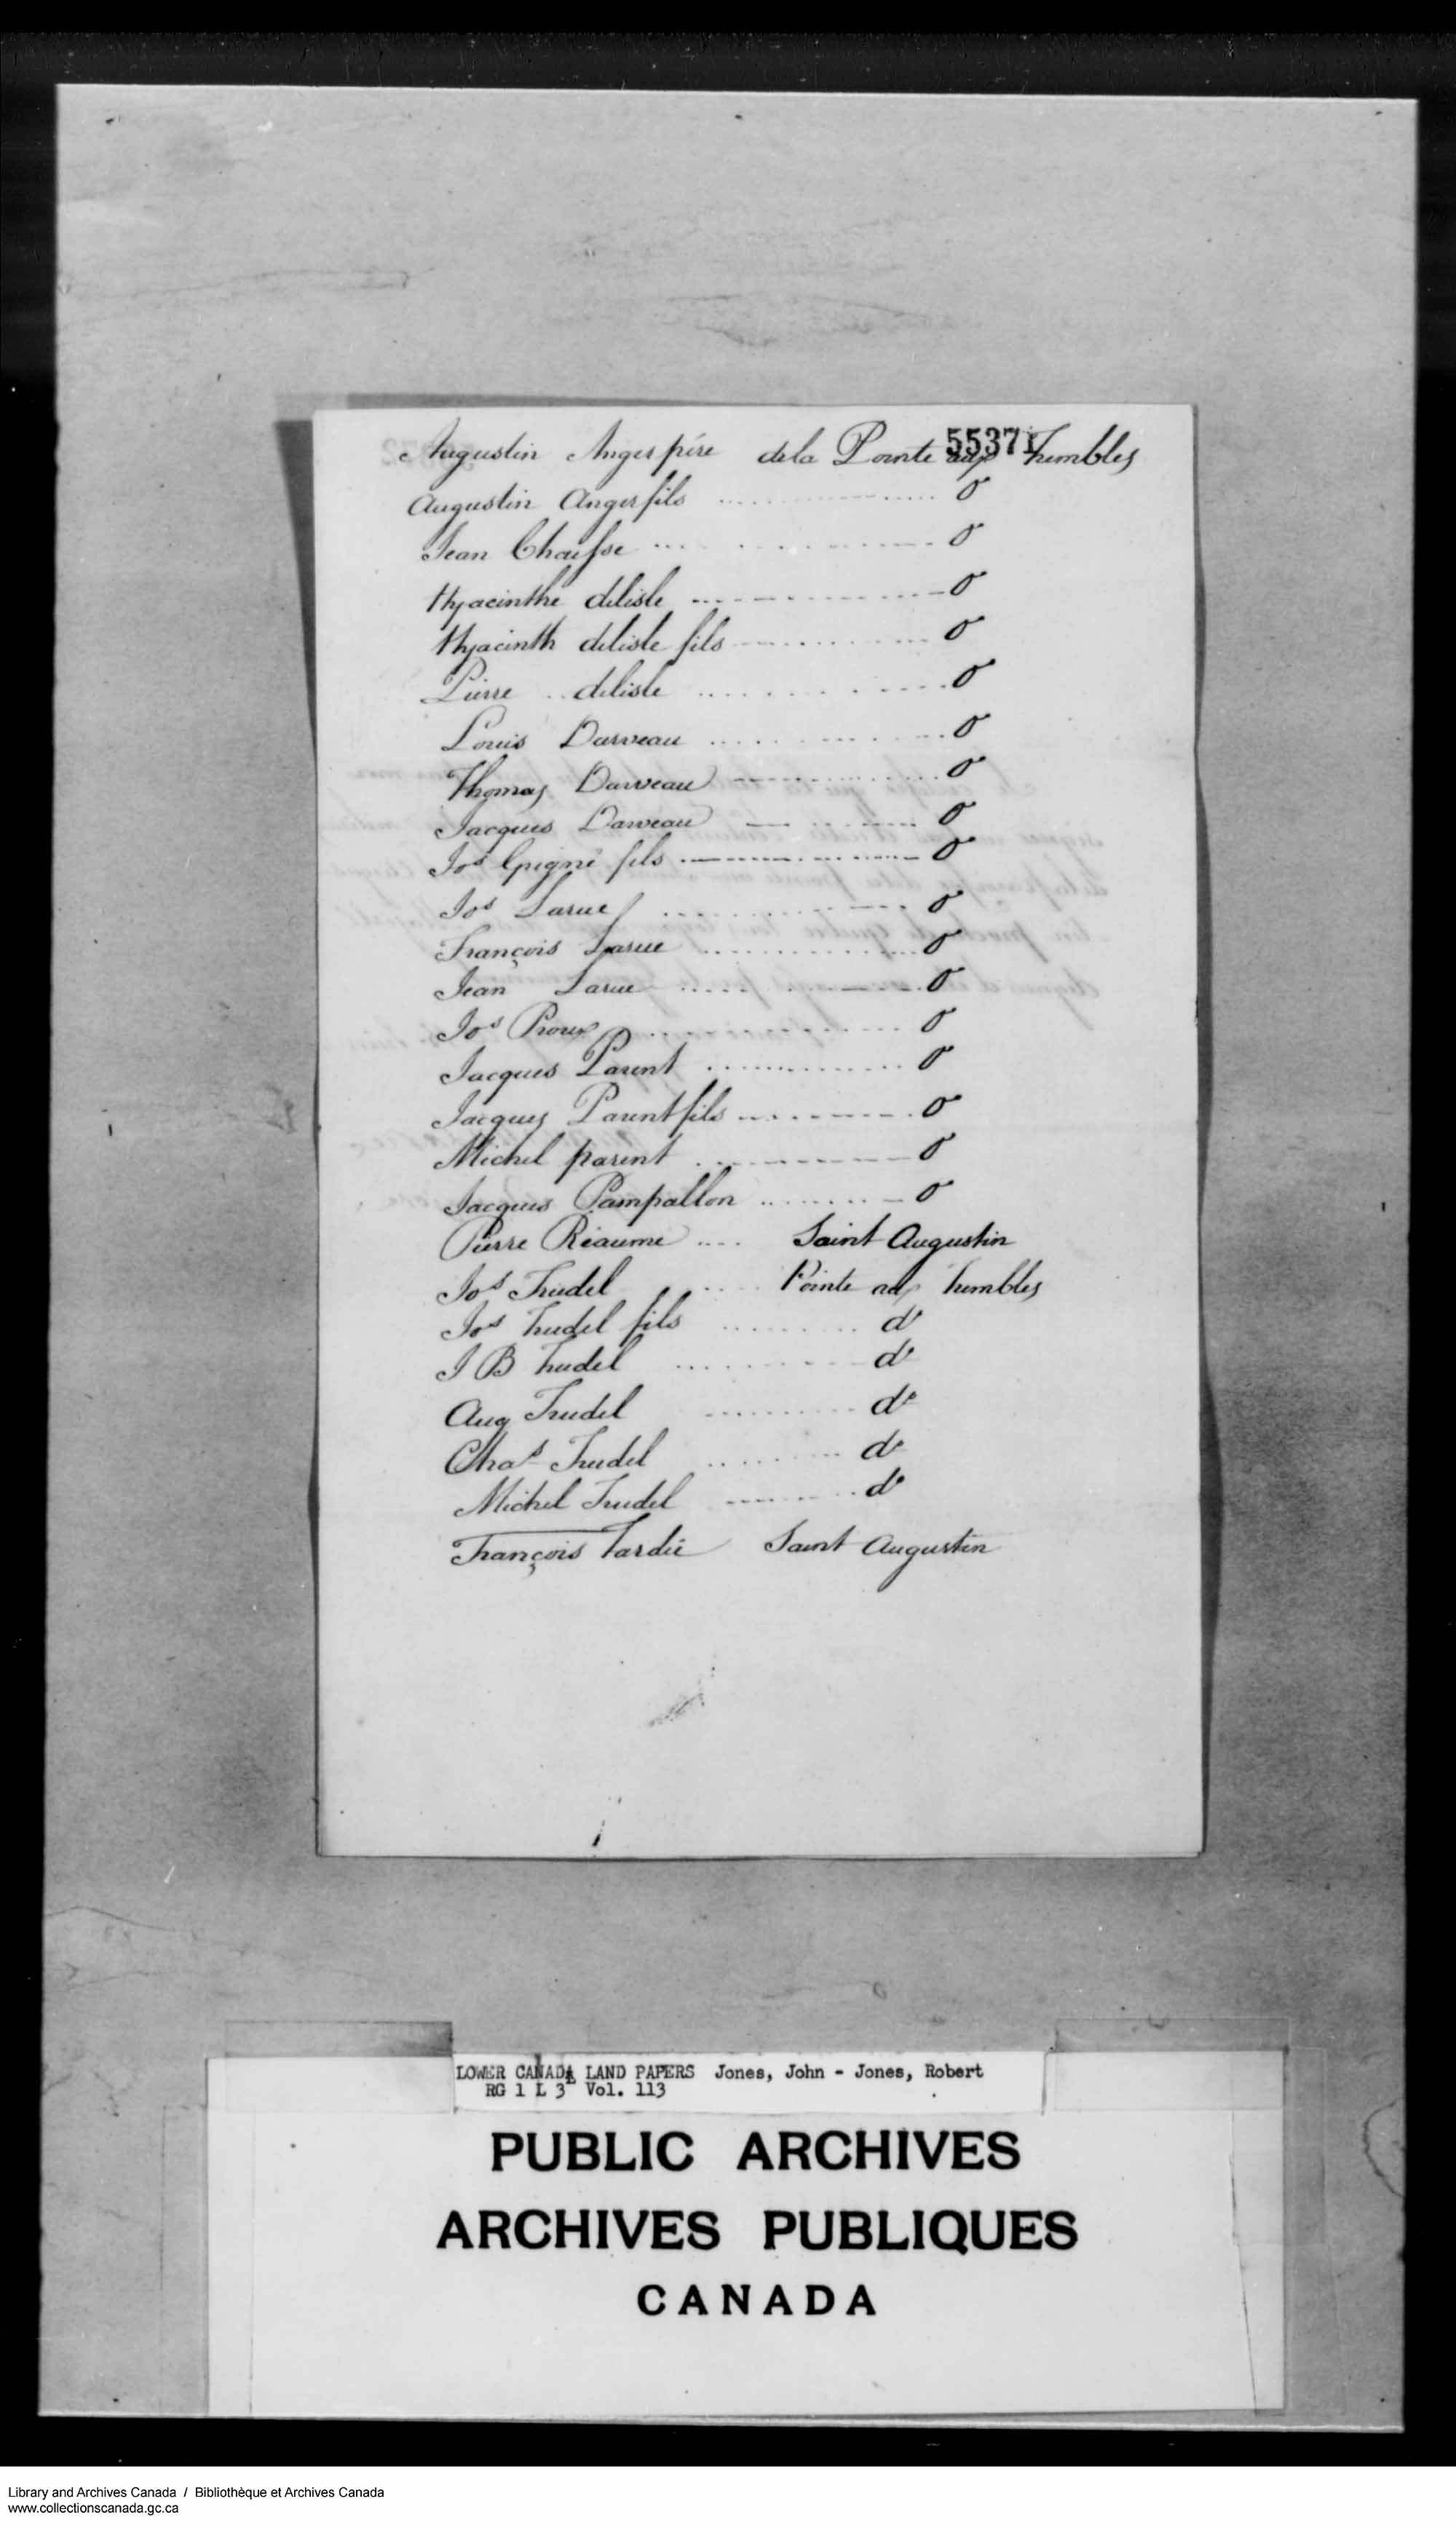 55371
Augustin Anger pére de la Pointe aux Trembles
Augustin Anger fils .......... do
Jean Chaisse .......... do
Hyacinthe delisle .......... do
Hyacinth delisle fils .......... do
Pierre .. delisle .......... do
Louis Darveau .......... do
Thomas Darveau .......... do
Jacques Darveau .......... do
Jos Gpigné fils .......... do
Jos Larue .......... do
François Larue .......... do
Jean Larue .......... do
Jos Proux .......... do
Jacques Parent .......... do
Jacques Parent fils .......... do
Michel parent .......... do
Jacques Pampallon .......... do
Pierre Réaume .... Saint Augustin
Jos Trudel .... Pointe aux Trembles
Jos Trudel fils .......... do
J B Trudel .......... do
Aug Trudel .......... do
Chas Trudel .......... do
Michel Trudel .......... do
François Tardié Saint Augustin
LOWER CANADA LAND PAPERS Jones, John - Jones, Robert
RG 1 L 3 Vol. 113
PUBLIC ARCHIVES
ARCHIVES PUBLIQUES
CANADA
Library and Archives Canada / Bibliothèque et Archives Canada
www.collectionscanada.gc.ca